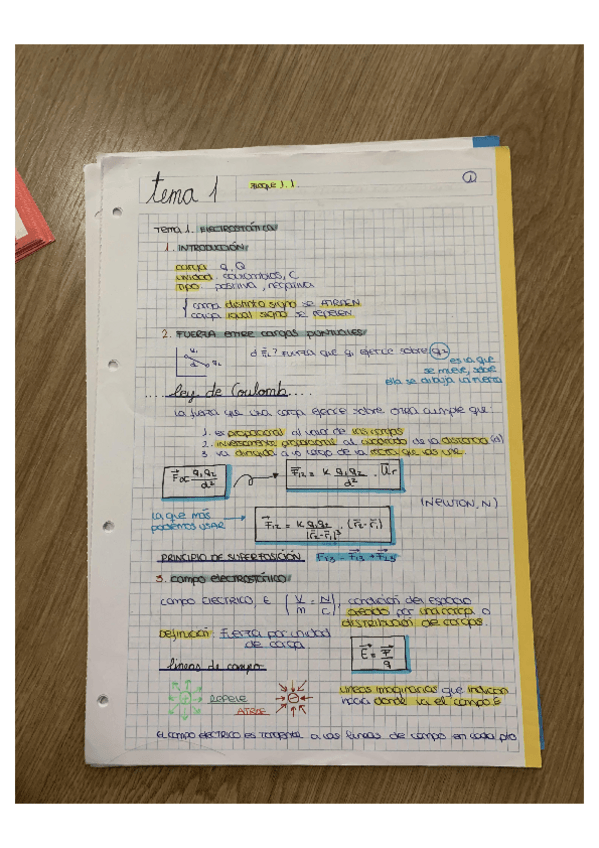 tema 1
BLOQUE 1.1.
1
TEMA 1. ELECTROSTÁTICA
1. INTRODUCCIÓN
carga q, Q
unidad coulombios, C
Tipo positiva, negativa
carga distinto signo se ATRAEN
carga igual signo se REPELEN
2. FUERZA ENTRE CARGAS PUNTUALES
d F₁₂? Fuerza que q₁ ejerce sobre q₂
es la que
se mueve, sobre
ella se dibuja la fuerza
Ley de Coulomb
La fuerza que una carga ejerce sobre otra cumple que:
1. es proporcional al valor de las cargas
2. inversamente proporcional al cuadrado de la distancia (d)
3. va dirigida a lo largo de la recta que las une.
F⃗ ∝ q₁q₂/d²
F⃗₁₂ = K q₁q₂/d² · u⃗r
(NEWTON, N)
La que más
podemos usar
F⃗₁₂ = K q₁q₂/|r⃗₂-r⃗₁|³ · (r⃗₂-r⃗₁)
PRINCIPIO DE SUPERPOSICIÓN
3. CAMPO ELECTROSTÁTICO
CAMPO ELÉCTRICO, E (V/m = N/C) condición del espacio
creado por una carga o
distribución de cargas.
Definición: Fuerza por unidad
de carga
E⃗ = F⃗/q
Líneas de campo
+ REPELE
- ATRAE
Líneas imaginarias que indican
hacia donde va el campo E
El campo eléctrico es tangencial a las líneas de campo en cada pto